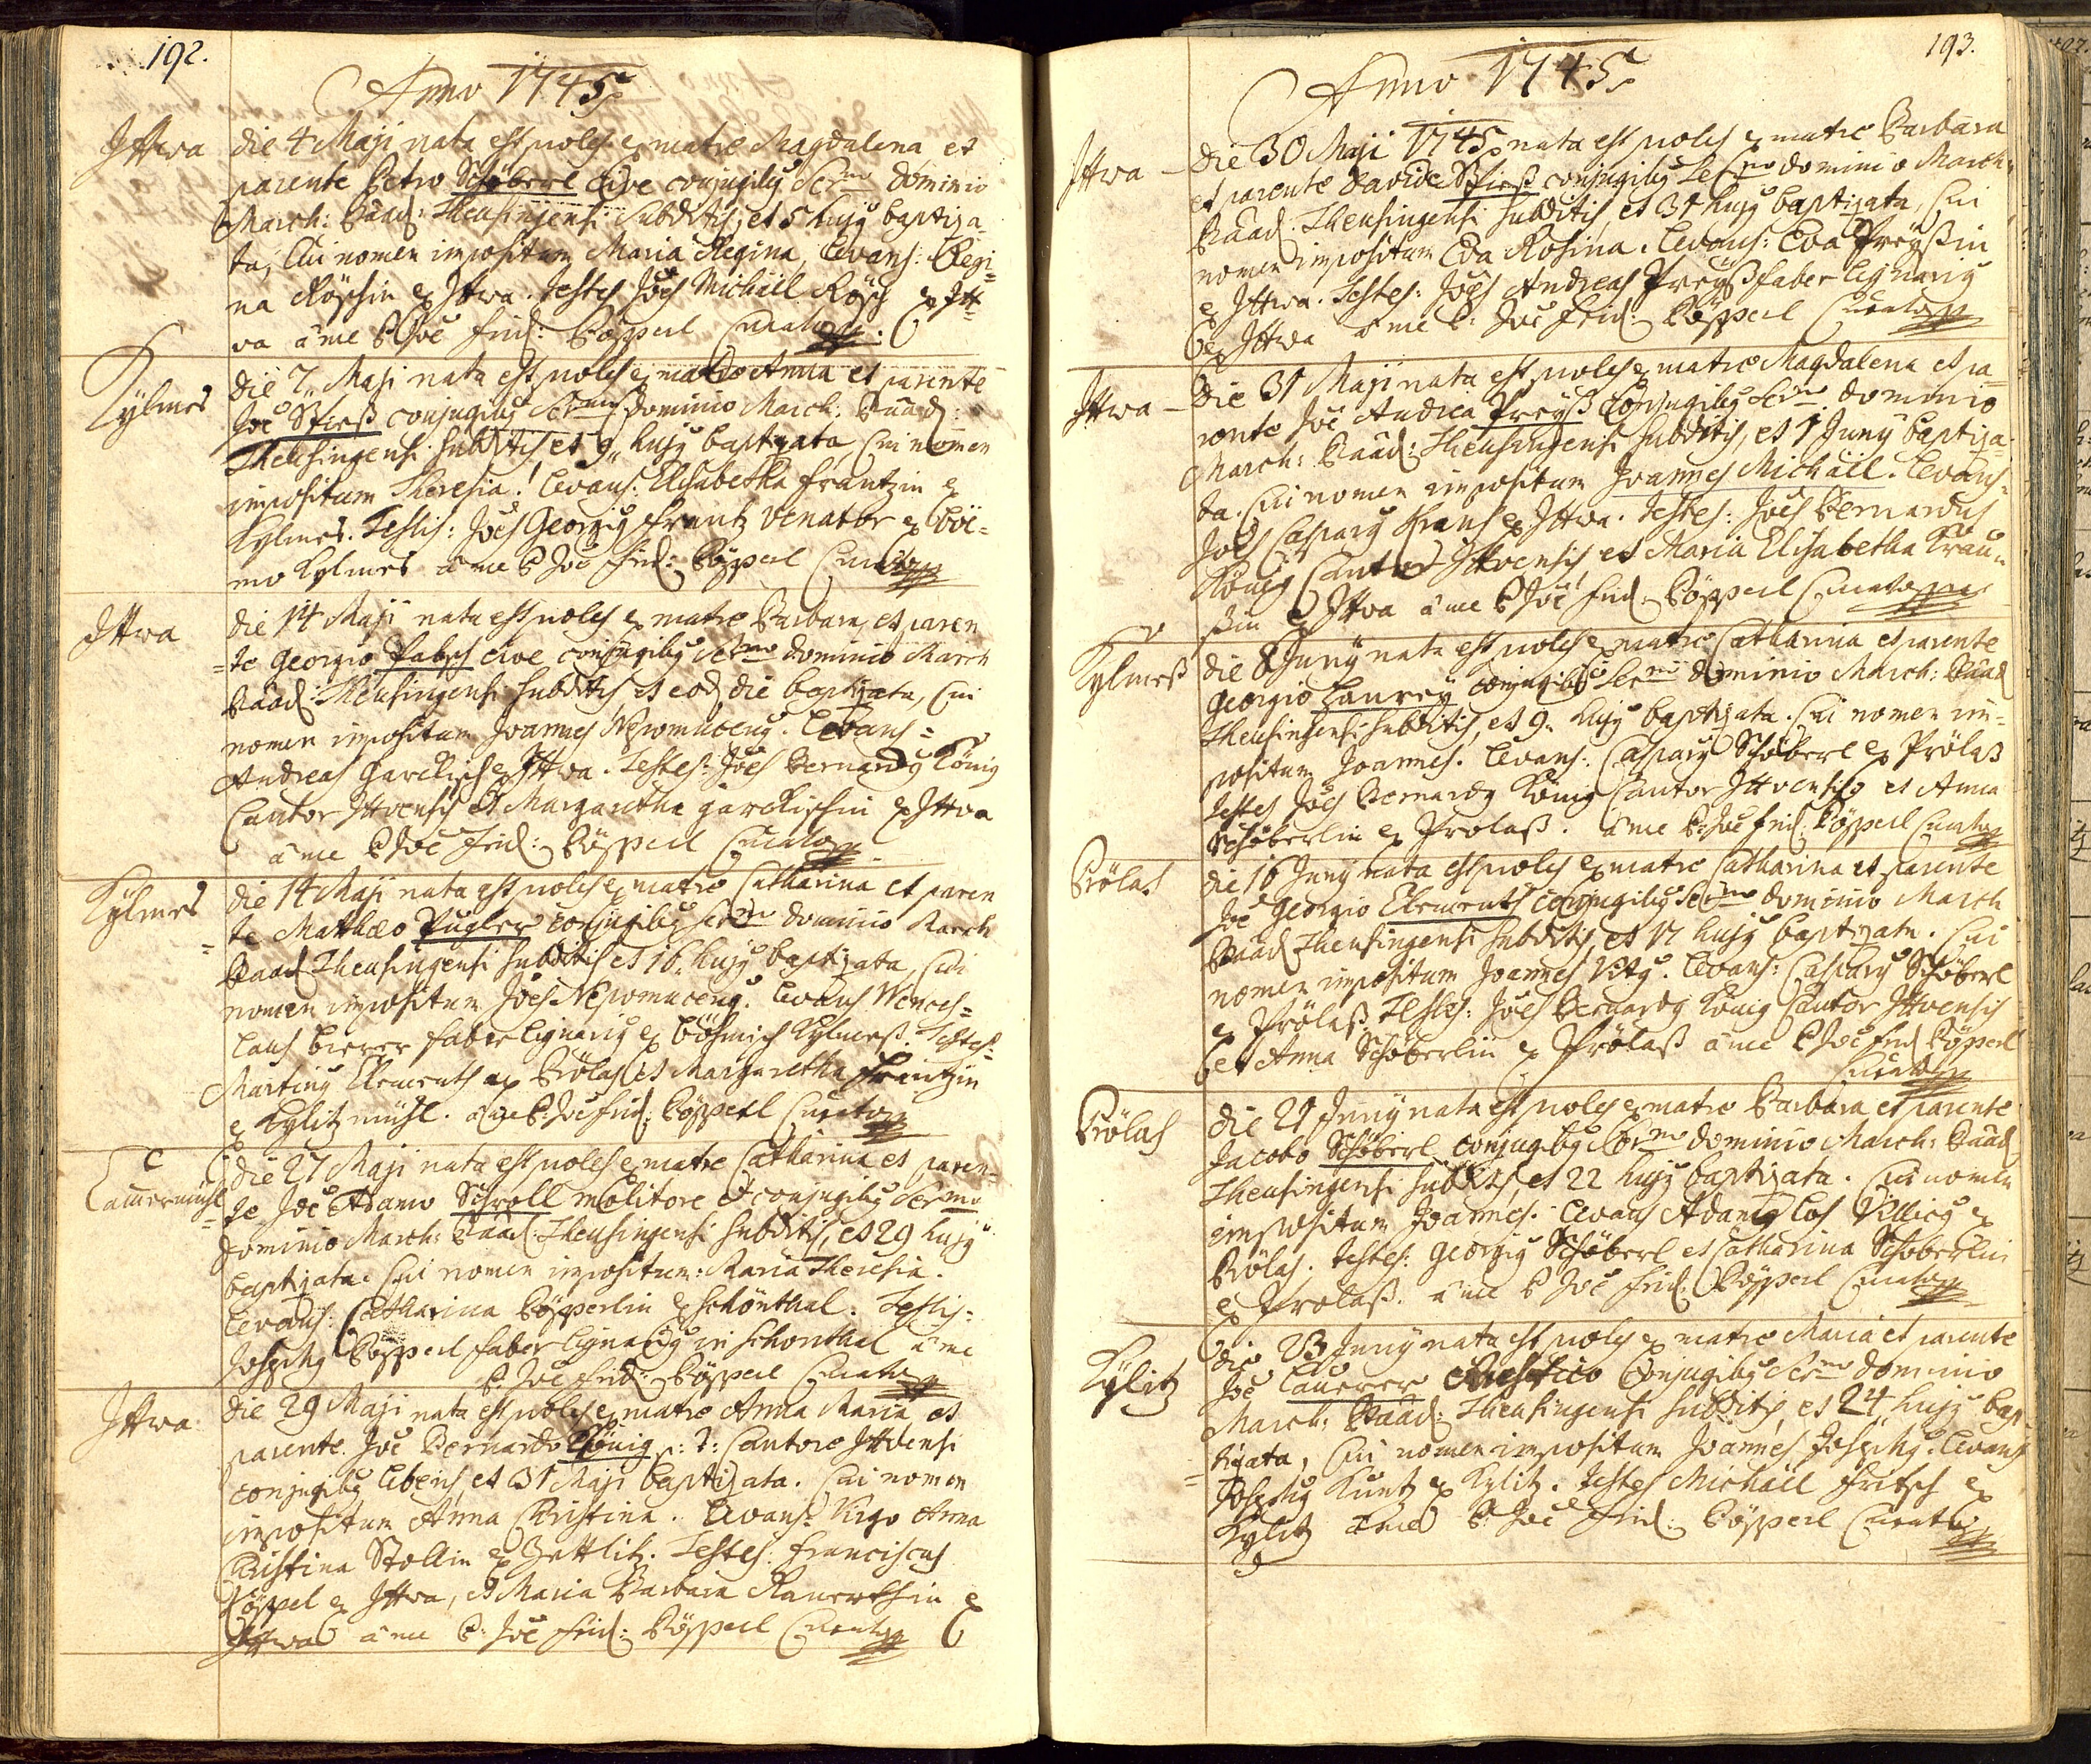 192.
Anno 1745
Ittwa
die 4 Maji nata est proles ex matre Magdalena et
parente Petro Schöberl cive conjugibus Sermo dominio
March: Baad: Theusingensi subditis, et 5 hujus baptiza-
ta, cui nomen impositum Maria Regina, Levans: Regi=
na Röschin ex Ittwa. Testes Joes Michäel Rösch ex Itt=
wa a me P Joe Frid: Pöpperl Curato
Kylmes
die 7. Maji nata est proles ex matre Anna et parente
Joe Spieß conjugibus Sermo dominio March: Baad:
Theusingensi subditis et 9 hujus baptizata, cui nomen
impositum Theresia. Levans: Elisabetha Frantzin ex
Kylmes. Testis: Joes Georgius Frantz venator ex boë=
mo Kylmes a me P Joe Frid: Pöpperl Curato
Ittwa
die 14 Maji nata est proles ex matre Barbara, et paren
=te Georgio Pabsch cive conjugibus Sermo dominio March
Baad: Theusingensi subditis, et eod die baptizata, cui
nomen impositum Joannes Nepomucenus. Levans=
Andreas Garckisch ex Ittwa. Testes: Joes Bernardus König
Cantor Ittvensis et Margaretha Garckischin ex Ittwa
a me P Joe Frid: Pöpperl Curato
Kylmes
die 14 Maji nata est proles ex matre Catharina et paren
=te Matthæo Pugler conjugibus Sermo dominio March
Baad Theusingensi subditis et 16 hujus baptizata, cui
nomen impositum Joes Nepomucenus. Levans Wences=
laus Bierer faber lignarius ex böhmisch Kylmeß. Testes=
Martinus Elements ex Prölas et Margaretha Frantzin
ex Kylitzmühl. a me P: Joe Frid: Pöpperl Curato
Lauermühl
die 27 Maji nata est proles ex matre Catharina et paren=
=te Joe Adamo Schroll molitore et conjugibus Sermo
dominio March: Baad: Theusingensi subditis, et 29 hujus
baptizata. Cui nomen impositum: Maria Theresia.
Levans: Catharina Pöpperlin ex Schönthal. Testis=
Josephus Pöpperl faber lignarius in Schönthal a me
P: Joe Frid: Pöpperl Curato
Ittwa
die 29 Maji nata est proles ex matre Anna Maria et
parente Joe Bernardo König p: t: Cantore Ittvensi
conjugibus liberis, et 31 Maji baptizata. Cui nomen
impositum Anna Christina. Levans: Virgo Anna
Christina Stöllin ex Zettlitz. Testes: Franciscus
Pöppel ex Ittwa, et Maria Barbara ex
Ittwa a me P: Joe Frid: Pöpperl Curato
193.
Anno 1745
Ittwa
die 30 Maji 1745 nata est proles ex matre Barbara
et parente Davide Spieß conjugibus Sermo dominio March:
Baad: Theusingensi subditis, et 31 hujus baptizata, cui
nomen impositum Eva Rosina. Levans: Eva Preyßin
ex Ittwa. Testes: Joes Andreas Preyß faber lignarius
ex Ittwa a me P: Joe Frid: Pöpperl Curato
Ittwa
Die 31 Maji nata est proles ex matre Magdalena et pa=
rente Joe Andrea Preyß Conjugibus Sermo dominio
March: Baad: Theusingensi subditis, et 1 Junij baptiza=
ta. Cui nomen impositum Joannes Michäel. Levans=
Joes Casparus Kraus ex Ittwa. Testes: Joes Bernardus
König Cantor Ittvensis, et Maria Elisabetha Krau=
sin ex Ittwa a me P Joe Frid: Pöpperl Curato
Kylmeß
die 8 Junij nata est proles ex matre Catharina et parente
Georgio Laurey conjugibus Sermo dominio March: Baad
Theusingensi subditis, et 9. hujus baptizata. Cui nomen im=
positum Joannes. Levans: Casparus Schöberl ex Prölaß
Testes Joes Bernardus König Cantor Ittvensis et Anna
Schöberlin ex Prolaß. a me P: Joe Frid: Pöpperl Curato
Prölas
die 16 Junij nata est proles ex matre Catharina et parente
Joe Georgio Elements conjugibus Sermo dominio March
Baad Theusingensi subditis, et 17 hujus baptizata. Cui
nomen impositum Joannes Vitus. Levans: Casparus Schöberl
ex Prölaß. Testes: Joes Bernardus König Cantor Ittvensis
et Anna Schöberlin ex Prölaß a me P Joe Frid Pöpperl
Curato
Prölas
die 21 Junij nata est proles ex matre Barbara et parente
Jacobo Schöberl conjugibus Sermo dominio March: Baad
Theusingensi subditis, et 22 hujus baptizata. Cui nomen
impositum Joannes. Levans Adamus Los Villicus ex
Prölas. Testes: Georgius Schöberl et Catharina Schöberlin
ex Prolaß. a me P Joe Frid: Pöpperl Curato
Kylitz
die 23 Junij nata est proles ex matre Maria et parente
Joe Lauerer Rustico Conjugibus Sermo dominio
March: Baad: Theusingensi subditis, et 24 hujus bap=
=tizata, cui nomen impositum Joannes Josephus. Levans
Josephus Kuntz ex Kylitz. Testes Michäel Fritsch ex
Kylitz a me P: Joe Frid: Pöpperl Curato